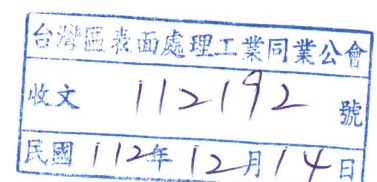 台灣區表面處理工業同業公會
收文 112192 號
民國 112年 12月 14日